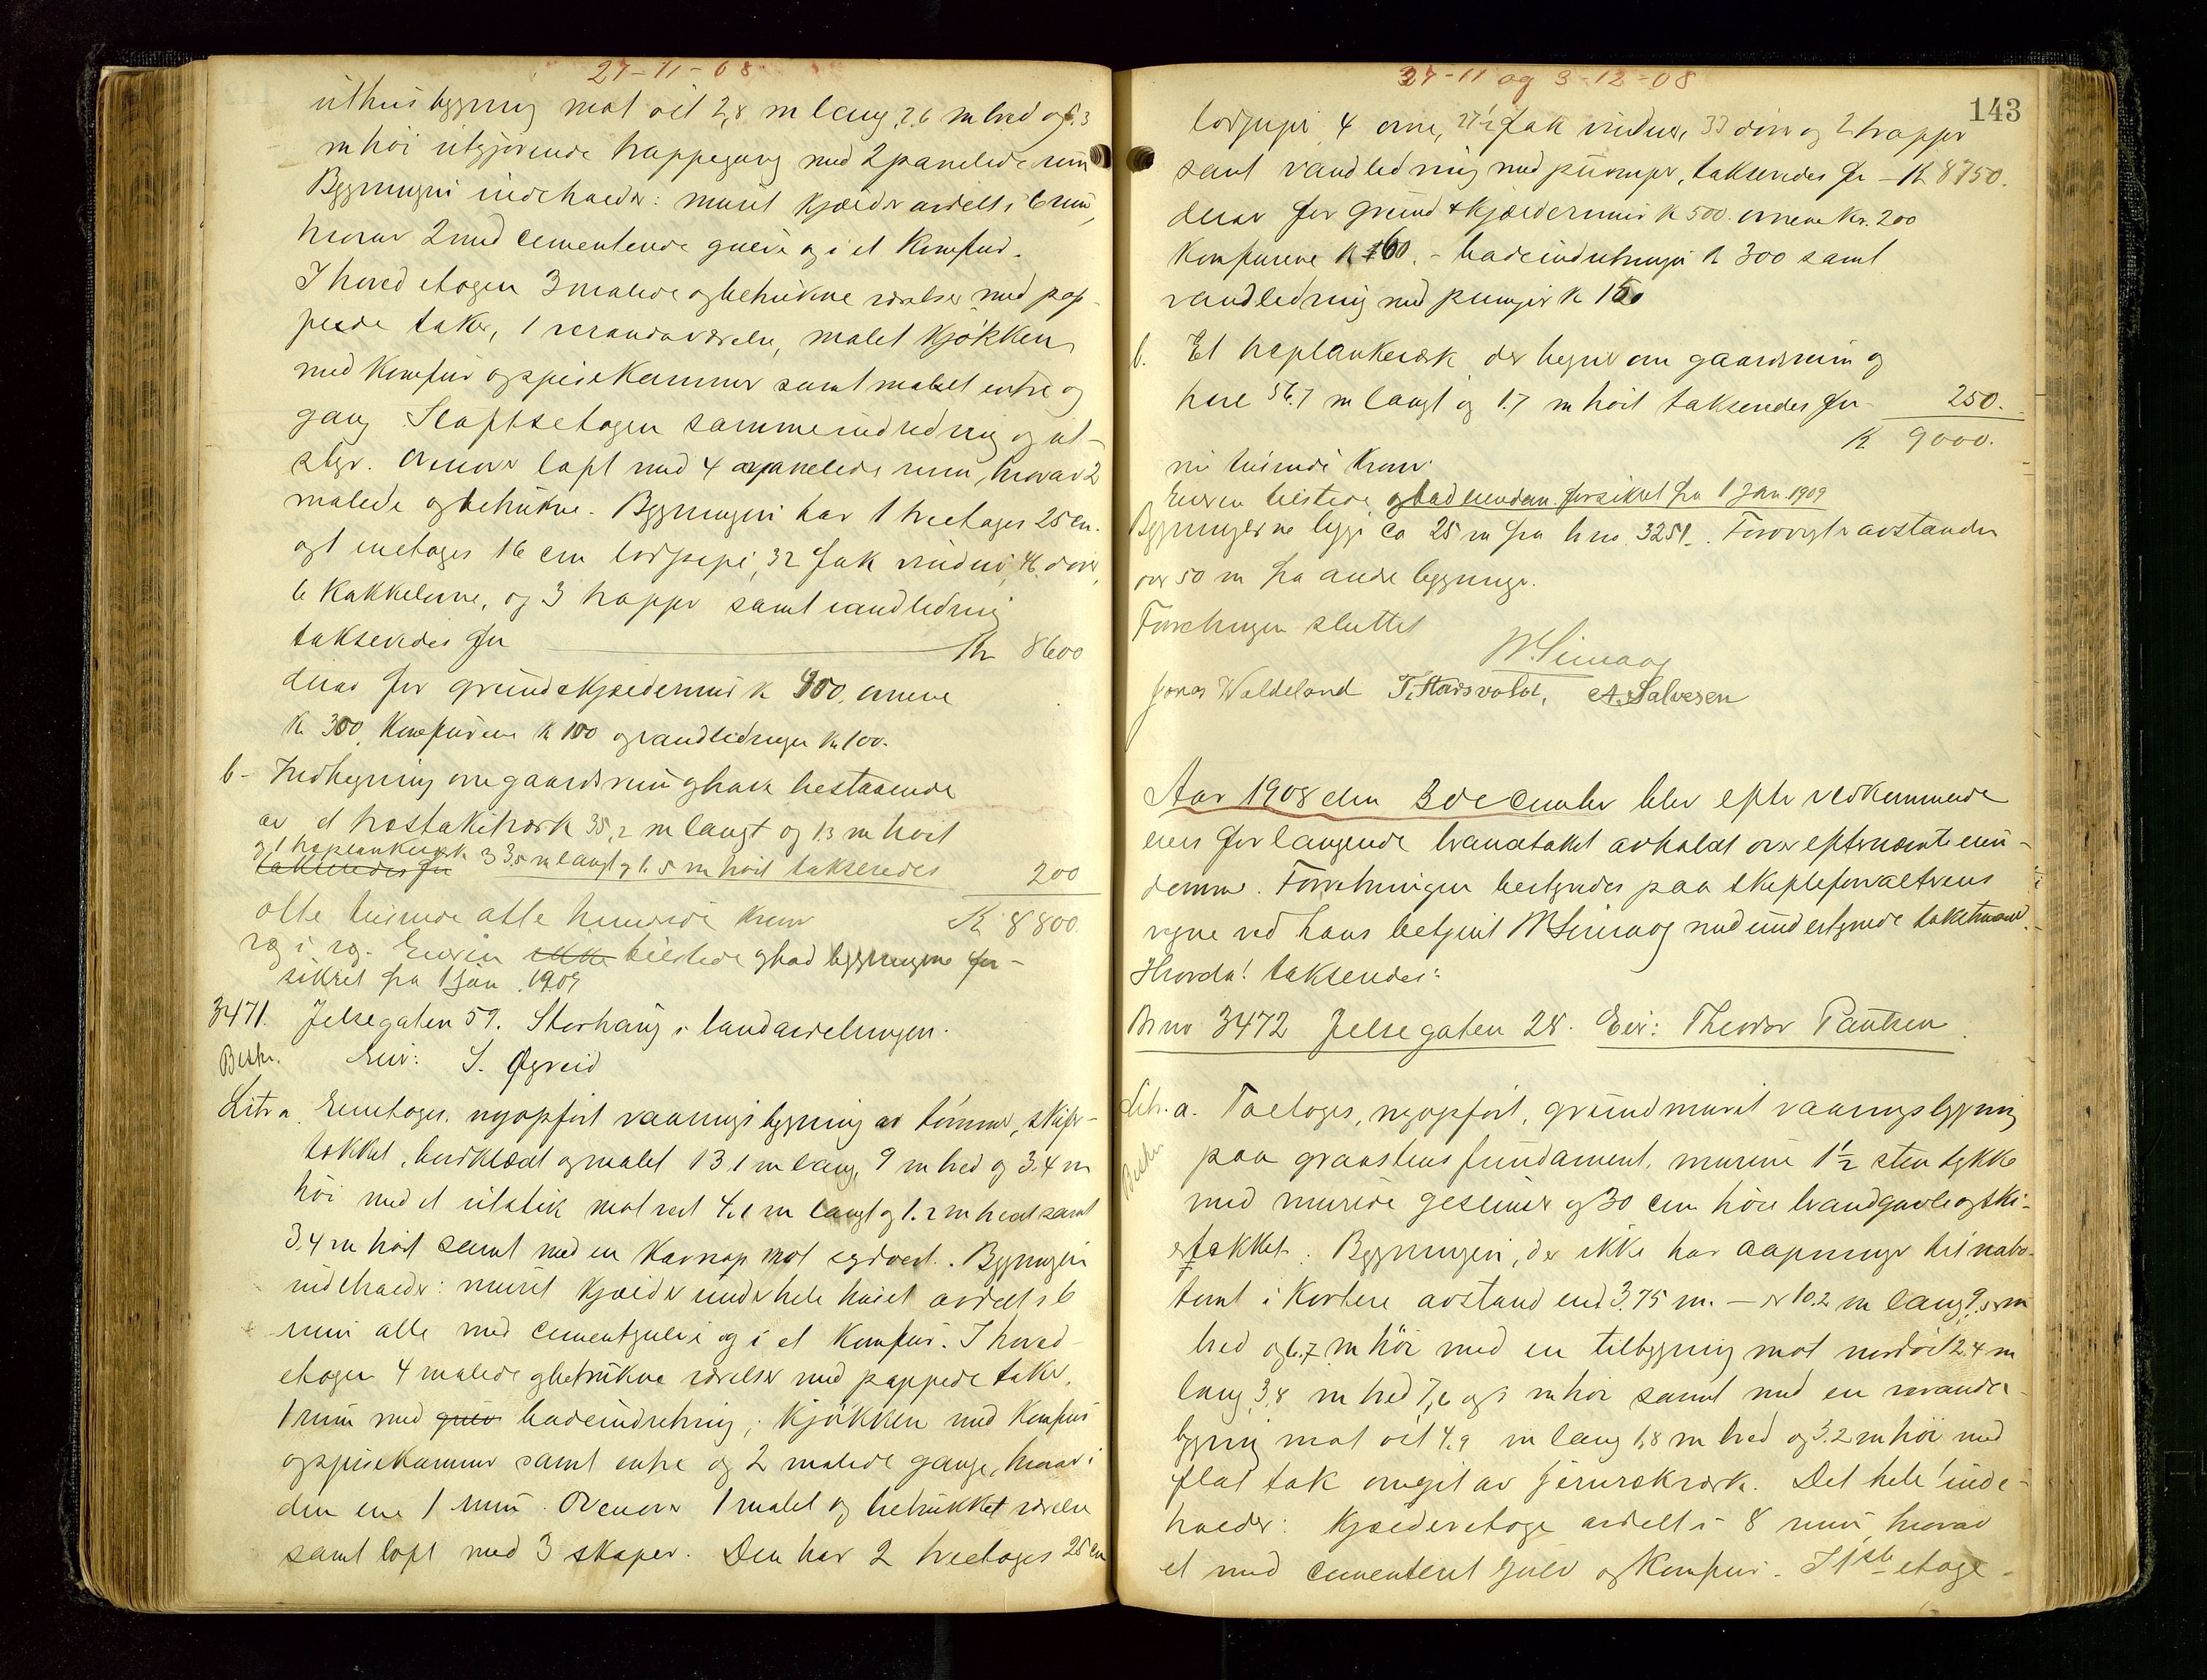 27-11-08
uthusbygning mot øst 2,8 m lang, 2.6 m bred og 6.3
m høi utgjørende trappegang med 2 panelede rum
Bygningen indeholder: muret kjælder avdelt i 6 rum,
hvorav 2 med cementerede gulve og i et komfur.
I hoved etagen 3 malede og betrukne værelser med pap-
pede taker, 1 verandaværelse, malet kjøkken
med komfur og spisekammer samt malet entre og
gang. Loftsetagen samme indredning og ut-
styr. Ovenover loft med 4 panelede rum, hvorav 2
malede og betrukne. Bygningen har 1 treetages 25 cm.
og 1 enetages 16 cm lodpipe, 32 fak vinduer, 46 dører,
6 kakkelovne, og 3 trapper samt vandledning
takseredes for Kr 8600
derav for grund & kjældermur k 900. ovnene
k 300 Komfurene k 100 og vandledningen kr 100.
b- Indhegning om gaardsrum og have bestaaende
av et træstakitværk 35,2 m langt og 1.3 m høit
og 1 træplankeværk 33,5 m langt og 1.5 m høit takseredes
takseredes for 200
otte tusinde otte hundrede kroner K 8800.
Eieren ikke tilstede og bad bygningene for-
sikret fra 1 jan. 1909
3471. Jelsegaten 59. Storhaug i landavdelingen.
Beskr. Eier: S. Øgreid
Litr a. Enetages, nyopført vaaningsbygning av tømmer, skifer-
tækket, bordklædt og malet 13.1 m lang, 9 m bred og 3.4 m
høi med et utstik mot vest 4.1 m langt og 1.2 m bredt samt
3.4 m høit samt med en karnap mot sydvest. Bygningen
indeholder: muret kjælder under hele huset avdelt i 6
rum alle med cementgulve og i et komfur. I hoved-
etagen 4 malede og betrukne værelser med pappede taker,
1 rum med gulv badeindretning, kjøkken med komfur
og spisekammer samt entre og 2 malede gange, hvorav i
den ene 1 rum. Ovenover 1 malet og betrukket værelse
samt loft med 3 skaper. Den har 2 treetages 25 cm
27-11 og 3-12-08
143
lodpiper, 4 ovne, 27½ fak vinduer, 33 dører og 2 trapper
samt vandledning med pumper, takseredes for - K 8750.
derav for grund & kjældermur k 500. ovnene Kr. 200
Komfurene k 160. - badeindretningen k 300 samt
vandledning med pumper k 150
b. Et træplankeværk der hegner om gaardsrum og
have 56.7 m langt og 1.7 m høit takseredes for 250.
K 9000.
ni tusinde kroner.
Eieren tilstede og bad eiendom. forsikret fra 1 jan. 1909
Bygningerne ligger ca 25 m fra br no. 3251. Forøvrigt avstanden
over 50 m fra andre bygninger.
Forretningen sluttet
Jonas Waldeland A. Salvesen
Aar 1908 den 3 december blev efter vedkommende
eiers forlangende brandtakst avholdt over efternævnte eien-
domme. Forretningen bestyredes paa skifteforvalterens
vegne ved hans betjent med undertegnede takstmænd.
Hvorda! takseredes:
Br no 3472 Jelsegaten 28. Eier: Theodor Paulsen.
Litr. a. Toetages, nyopført, grundmuret vaaningsbygning
Beskr.
paa graastens fundament, murene 1½ sten tykke
med murede gesimser og 30 cm høie brandgavle og ski-
fertækket. Bygningen, der ikke har aapninger til nabo-
tomt i kortere avstand end 3.75 m. - er 10.2 m lang, 9.5 m
bred og 6.7 m høi med en tilbygning mot nordøst 2.4 m
lang, 3.8 m bred 7,6 og m høi samt med en veranda-
bygning mot øst 4.9 m lang 1,8 m bred og 3.2 m høi med
flat tak omgit av jernrækværk. Det hele inde-
holder: Kjælderetage avdelt i 8 rum, hvorav
et med cementeret gulv og komfur. I 1ste etage